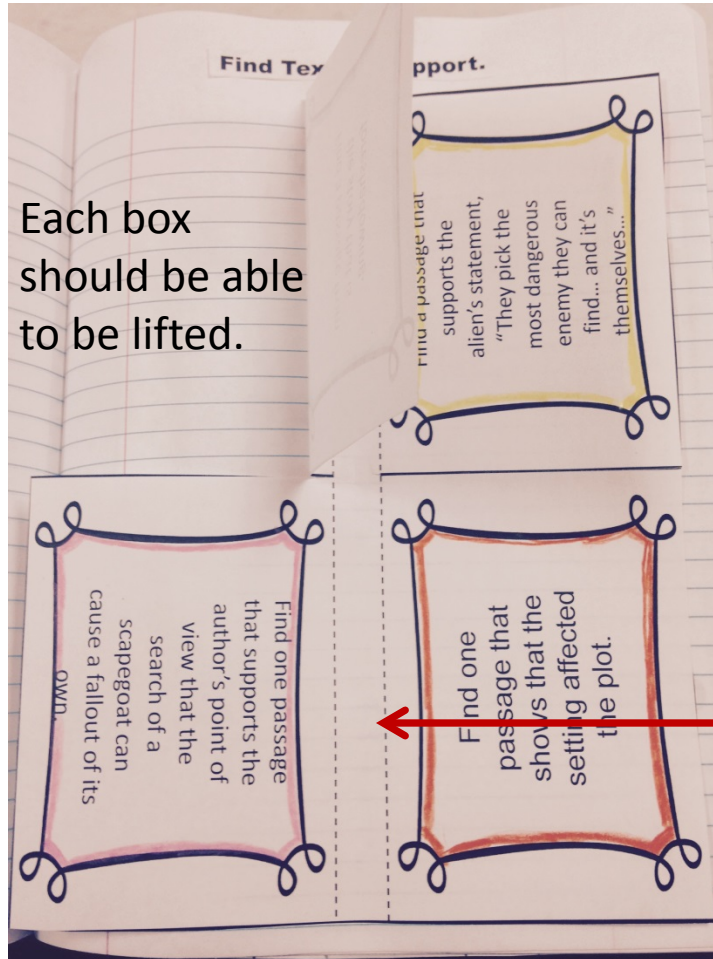 Find Tex pport.
Each box
should be able
to be lifted.
Find a passage that
supports the
alien's statement,
"They pick the
most dangerous
enemy they can
find... and it's
themselves..."
Find one passage
that supports the
author's point of
view that the
search of a
scapegoat can
cause a fallout of its
own.
Find one
passage that
shows that the
setting affected
the plot.